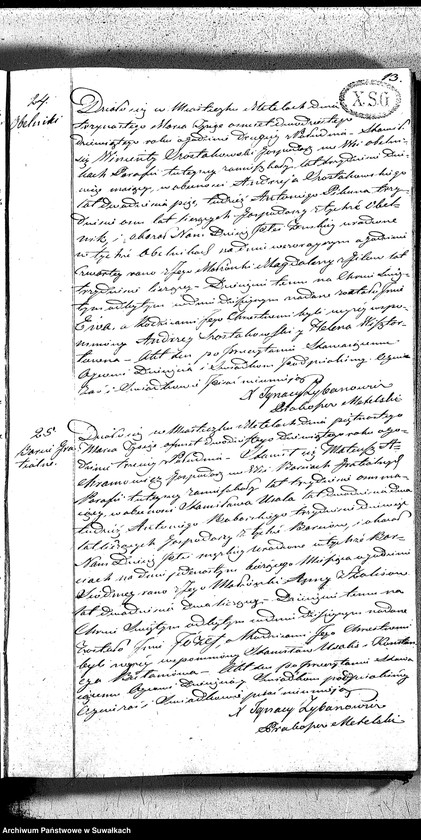 13.
X.S.G
24.
Obelniki
Działo się w Miasteczku Metelach dnia
trzynastego Marca Tysiąc osmset dwudziestego
dziewiątego roku o godzinie drugiej z Południa - Stawił
się Wincenty Szostakowski Gospodarz we Wsi Obelni-
kach Parafii tuteyszey zamieszkały lat trzydzieści dzie-
więć maiący, w obecności Andrzeja Szostakowskiego
lat dwadzieścia pięć, tudzież Antoniego lat trzy-
dzieści osm lat liczących Gospodarzy z tychże Obel-
nik, i okazał Nam Dziecię płci żeńskiey urodzone
w tychże Obelnikach na dniu wczorayszym o godzinie
czwartey rano z Jego Małżonki Magdaleny z lat
trzydzieści liczącey - Dziecięciu temu na Chrzcie Swię-
tym odbytym w dniu dzisieyszym nadane zostało Jmie
Ewa, a Rodzicami Jego Chrzestnemi byli wyżey wspo-
mniony Andrzey Szostakowski z Helena
- Akt ten po przeczytaniu Stawaiącemu
Oycowi Dziecięcia i Swiadkom Podpisaliśmy. Oyciec
zaś i Swiadkowie pisać nieumieią
X Ignacy Zybanowicz
Proboszcz Metelski
25
Barcie Gra-
tialne.
Działo się w Miasteczku Metelach dnia piętnastego
Marca Tysiąc osmset dwudziestego dziewiątego roku o go-
dzinie trzeciey z Południa - Stawił się Mateusz A-
chramowicz Gospodarz we Wsi Barciach Gratialnych
Parafii tuteyszey zamieszkały lat trzydzieści osm ma-
iący, w obecności Stanisława lat dwadzieścia dwa
tudzież Antoniego trzydzieści dziewięć
lat liczących Gospodarzy z tychże Barciow, i okazał
Nam Dziecię płci męzkiey urodzone w tychże Bar-
ciach na dniu jedenastym bieżącego Miesiąca o godzinie
siodmey rano z Jego Małżonki Anny
lat dwadzieścia dwa liczącey - Dziecięciu temu na
Chrzcie Swiętym odbytym w dniu dzisieyszym nadane
zostało Jmie Jozef, a Rodzicami Jego Chrzestnemi
byli wyżey wspomniony Stanisław z Konstan-
cya - Akt ten po przeczytaniu Stawa-
iącemu Oycowi Dziecięcia i Swiadkom podpisaliśmy
Oyciec zaś i Swiadkowie pisać nieumieią
X Ignacy Zybanowicz
Proboszcz Metelski
Archiwum Państwowe w Suwałkach